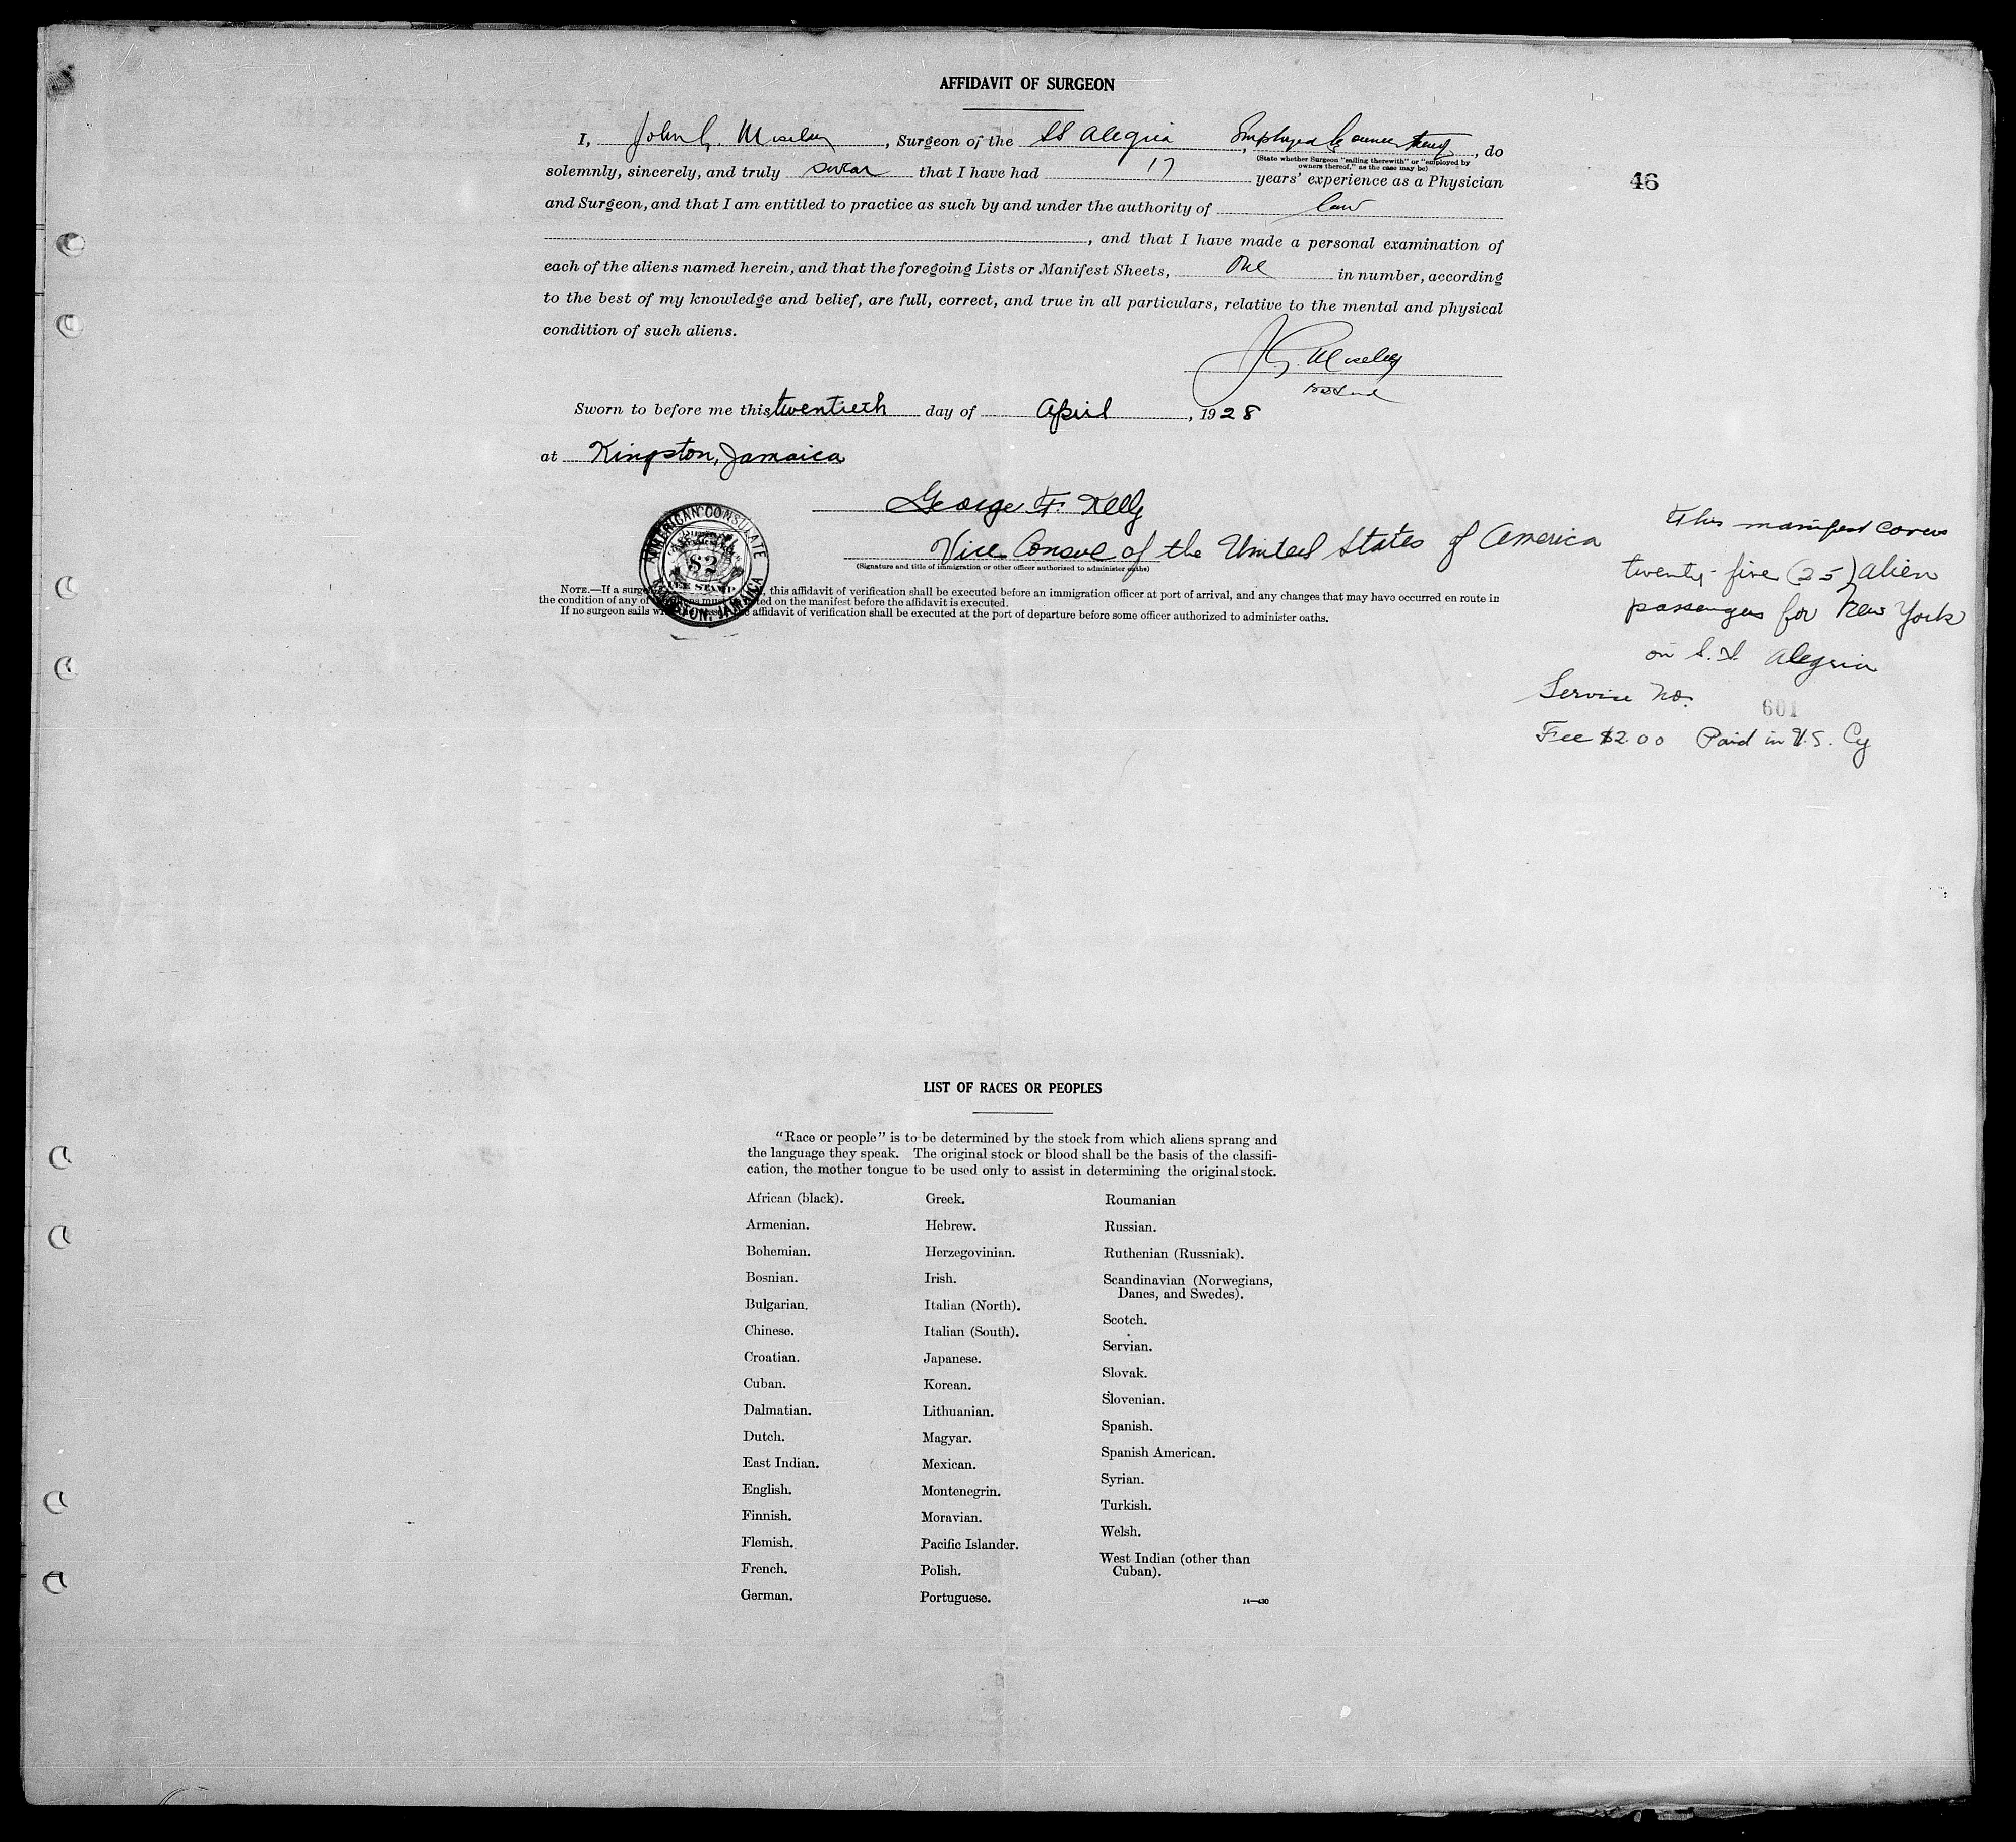 AFFIDAVIT OF SURGEON
I, John G. Moseley, Surgeon of the SS Alegria, Employed by owners thereof, do
(State whether Surgeon "sailing therewith" or "employed by
owners thereof," as the case may be)
solemnly, sincerely, and truly swear that I have had 17 years' experience as a Physician
46
and Surgeon, and that I am entitled to practice as such by and under the authority of law
, and that I have made a personal examination of
each of the aliens named herein, and that the foregoing Lists or Manifest Sheets, One in number, according
to the best of my knowledge and belief, are full, correct, and true in all particulars, relative to the mental and physical
condition of such aliens.
J. G. Moseley
Sworn to before me this twentieth day of April, 1928
at Kingston, Jamaica
George F. Kelly
Vice Consul of the United States of America
(Signature and title of immigration or other officer authorized to administer oaths)
AMERICAN CONSULATE
$2
KINGSTON, JAMAICA
NOTE.—If a surgeon, this affidavit of verification shall be executed before an immigration officer at port of arrival, and any changes that may have occurred en route in
the condition of any of must be noted on the manifest before the affidavit is executed.
If no surgeon sails with vessel the affidavit of verification shall be executed at the port of departure before some officer authorized to administer oaths.
This manifest covers
twenty-five (25) alien
passengers for New York
on S.S. Alegria
Service No. 601
Fee $2.00 Paid in U.S. Cy
LIST OF RACES OR PEOPLES
"Race or people" is to be determined by the stock from which aliens sprang and
the language they speak. The original stock or blood shall be the basis of the classifi-
cation, the mother tongue to be used only to assist in determining the original stock.
African (black).
Armenian.
Bohemian.
Bosnian.
Bulgarian.
Chinese.
Croatian.
Cuban.
Dalmatian.
Dutch.
East Indian.
English.
Finnish.
Flemish.
French.
German.
Greek.
Hebrew.
Herzegovinian.
Irish.
Italian (North).
Italian (South).
Japanese.
Korean.
Lithuanian.
Magyar.
Mexican.
Montenegrin.
Moravian.
Pacific Islander.
Polish.
Portuguese.
Roumanian
Russian.
Ruthenian (Russniak).
Scandinavian (Norwegians,
Danes, and Swedes).
Scotch.
Servian.
Slovak.
Slovenian.
Spanish.
Spanish American.
Syrian.
Turkish.
Welsh.
West Indian (other than
Cuban).
14—430